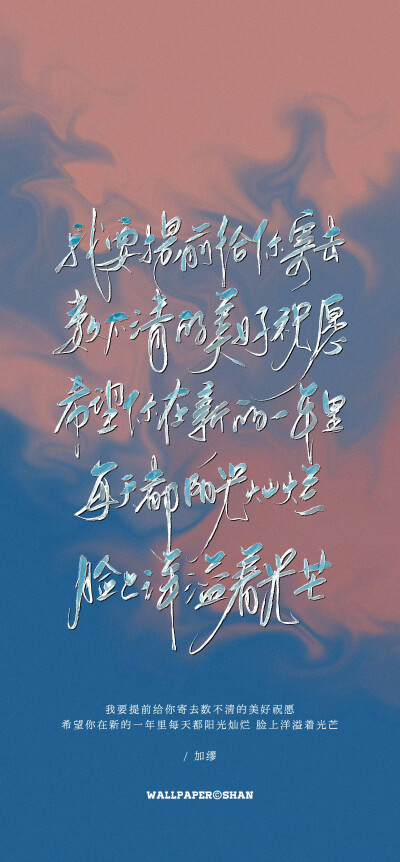 我要提前给你寄去
数不清的美好祝愿
希望你在新的一年里
每天都阳光灿烂
脸上洋溢着光芒
我要提前给你寄去数不清的美好祝愿
希望你在新的一年里每天都阳光灿烂 脸上洋溢着光芒
/ 加缪
WALLPAPER©SHAN